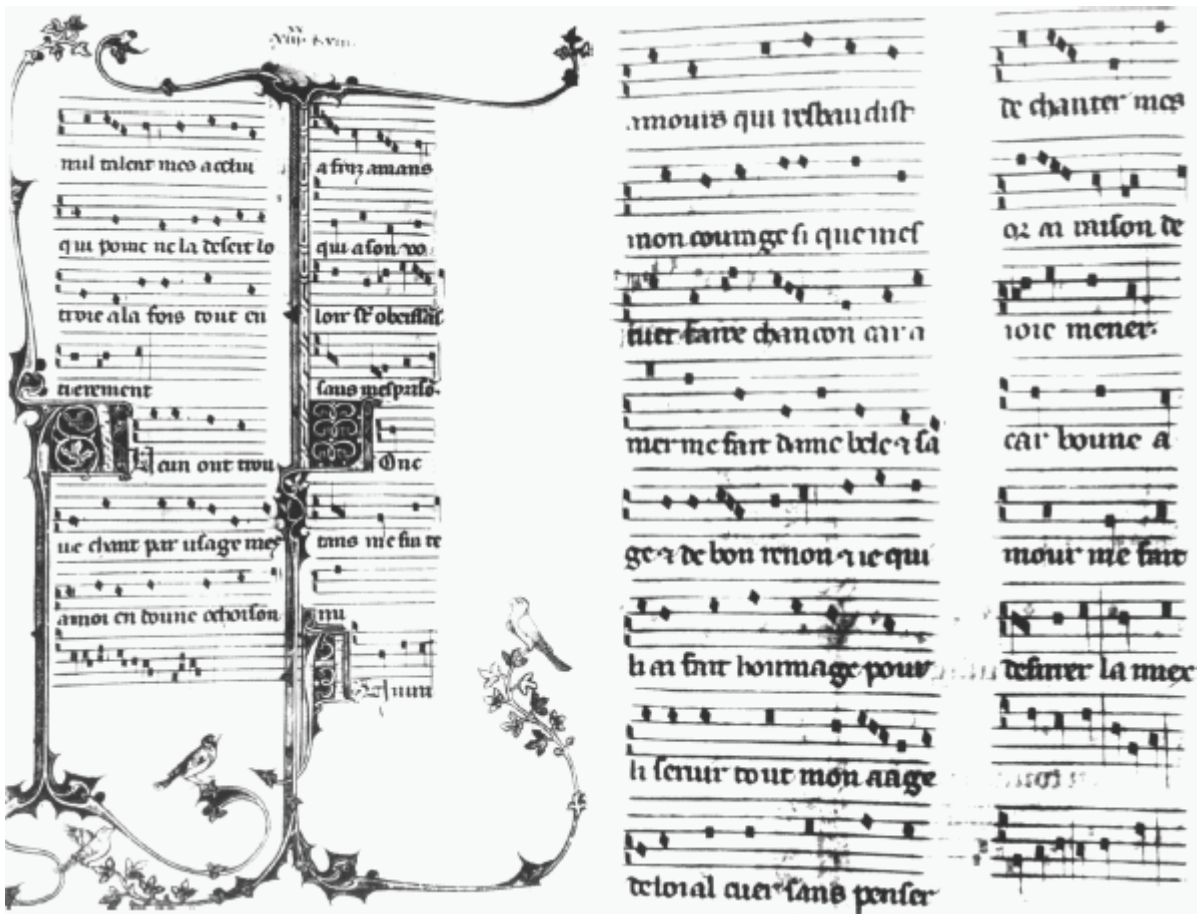 nul talent mes
qui point ne la desert lo
troie a la fois tout en
tierement
cun ont trou
ue chant par usage mes
a moi en doune ochoison
a finz amans
qui a son vo
loir
sans mespriso
Onc
tans me sui te
nu
amours qui resbaudist
mon courage si que mes
cuer faire chancon car a
mer me fait dame bele ⁊ sa
ge ⁊ de bon renon ⁊ ie qui
li ai fait hommage pour
li seruir tout mon aage
de loial cuer sans penser
de chanter mes
or ai raison de
ioie mener.
car boune a
mour me fait
desirer la miex